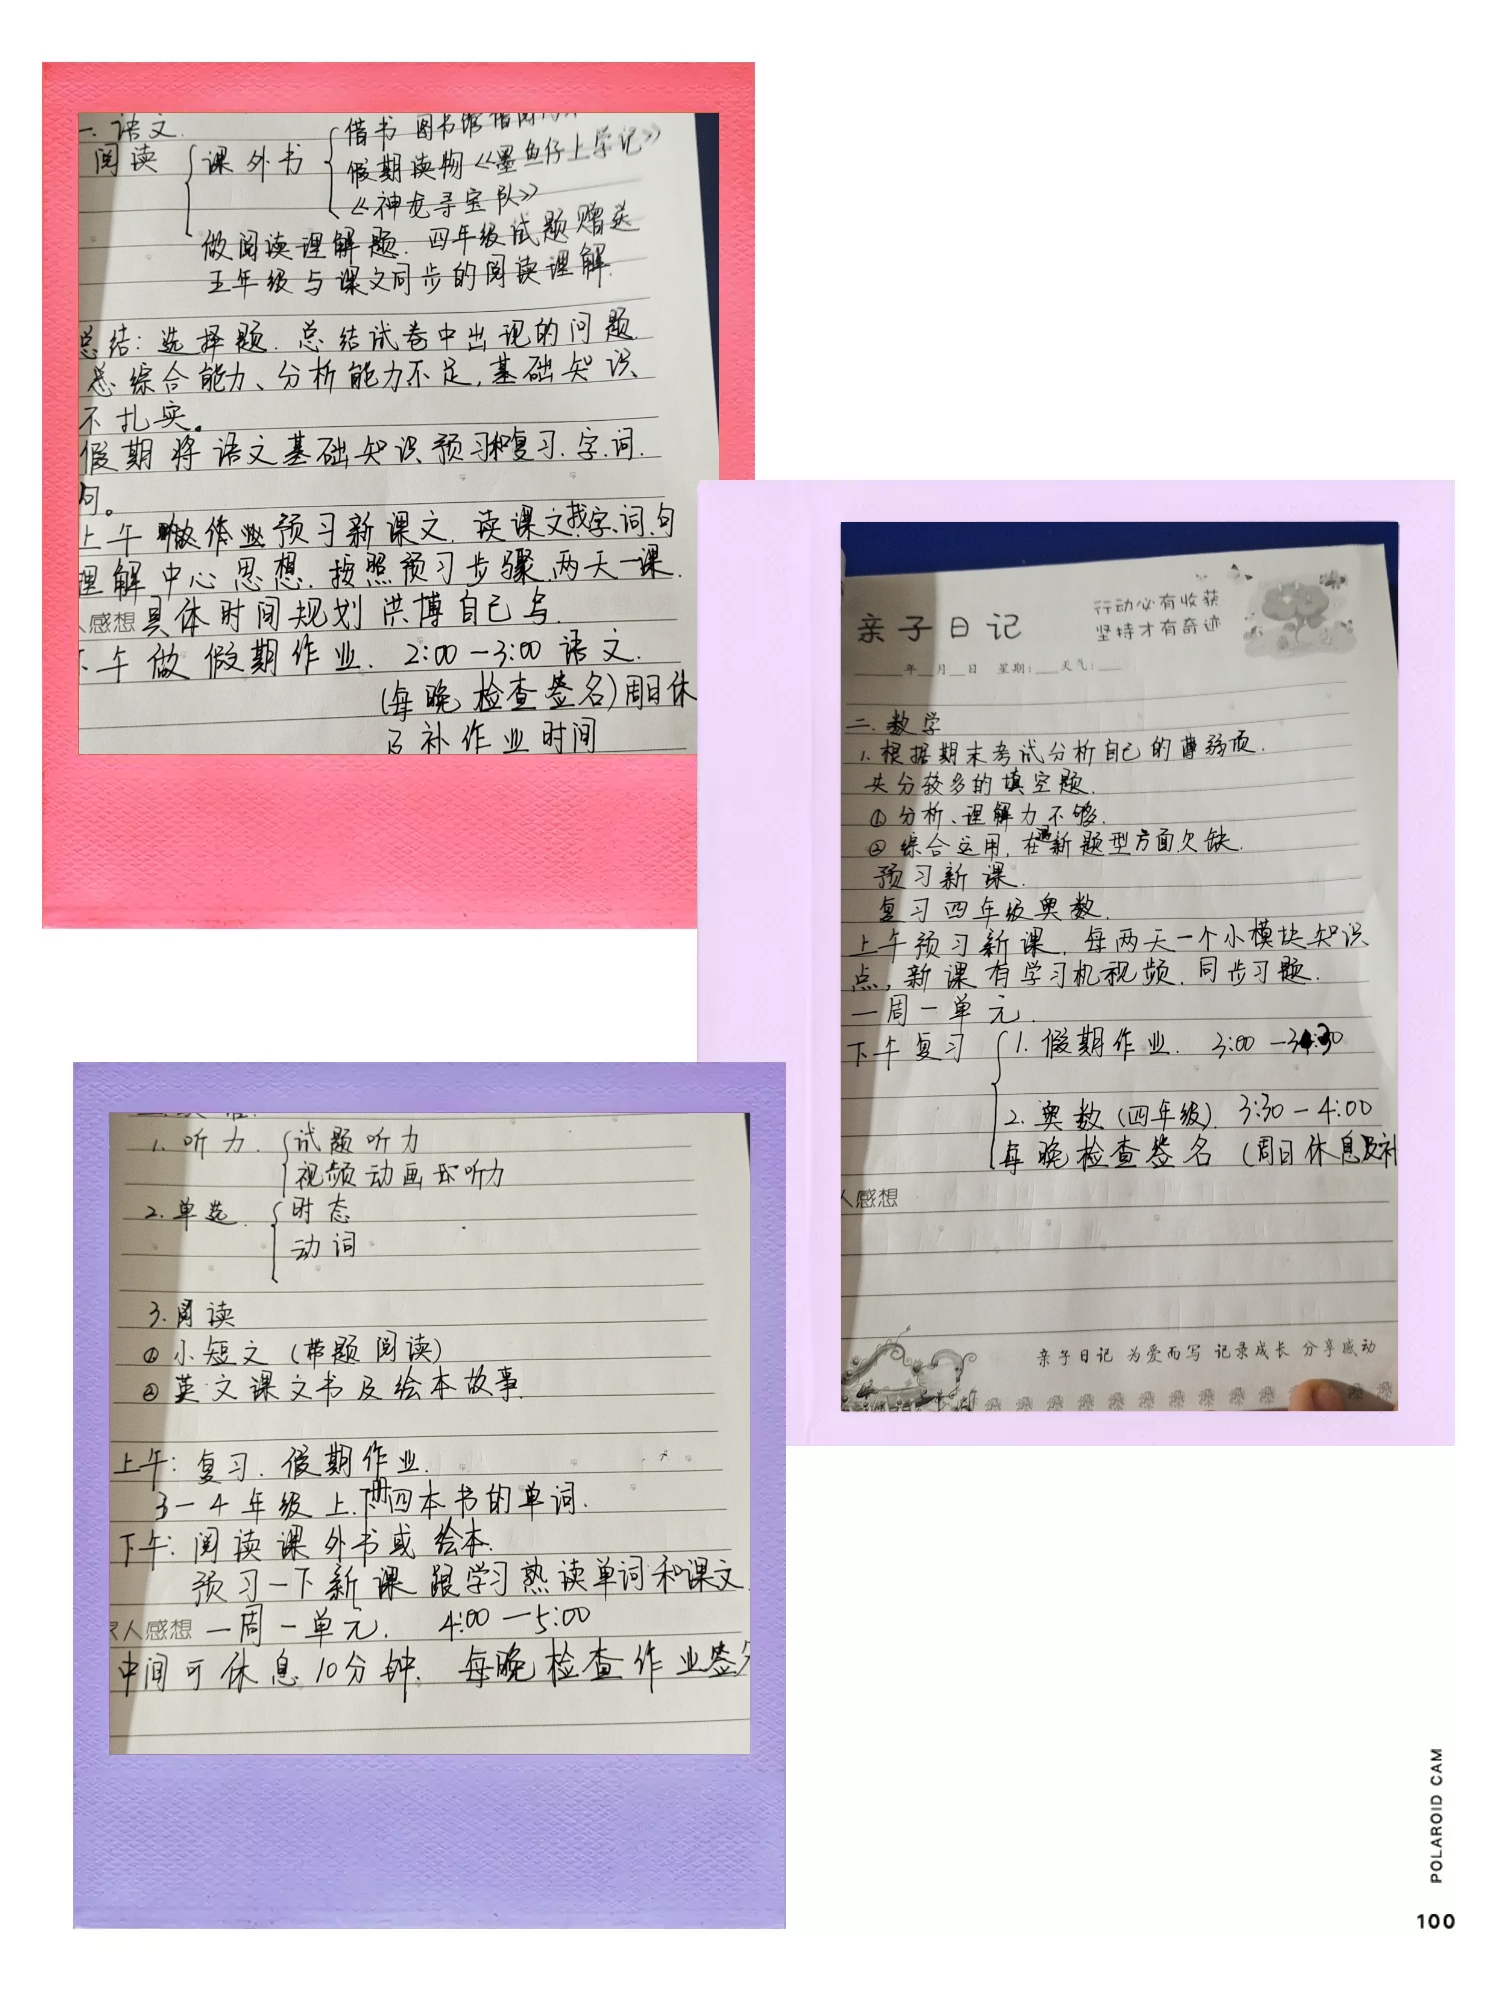 一. 语文.
阅读
课外书
借书 图书馆借阅
假期读物《墨鱼仔上学记》
《神龙寻宝队》
做阅读理解题. 四年级试题赠送
五年级与课文同步的阅读理解.
总结: 选择题. 总结试卷中出现的问题.
综合能力、分析能力不足, 基础知识
不扎实。
假期将语文基础知识预习和复习. 字. 词.
句。
上午 做作业 预习新课文. 读课文找字、词、句
理解中心思想. 按照预习步骤. 两天一课.
人感想 具体时间规划洪博自己写.
下午做假期作业. 2:00—3:00 语文.
(每晚检查签名)周日休
及补作业时间
亲子日记
行动必有收获
坚持才有奇迹
年 月 日 星期: 天气:
二. 数学
1. 根据期末考试分析自己的薄弱项.
失分较多的填空题.
① 分析、理解力不够.
② 综合运用, 在遇新题型方面欠缺.
预习新课.
复习四年级奥数.
上午预习新课. 每两天一个小模块知识
点, 新课有学习机视频. 同步习题.
一周一单元.
下午复习
1. 假期作业. 3:00—3:30
2. 奥数(四年级). 3:30—4:00
每晚检查签名 (周日休息及补
人感想
亲子日记 为爱而写 记录成长 分享感动
1. 听力.
试题听力
视频动画 听力
2. 单选.
时态
动词
3. 阅读
① 小短文 (带题阅读)
② 英文课文书及绘本故事.
上午: 复习. 假期作业.
3—4年级上.下册四本书的单词.
下午: 阅读课外书或绘本.
预习一下新课 跟学习熟读单词和课文.
家人感想 一周一单元. 4:00—5:00
中间可休息10分钟. 每晚检查作业签名
POLAROID CAM
100